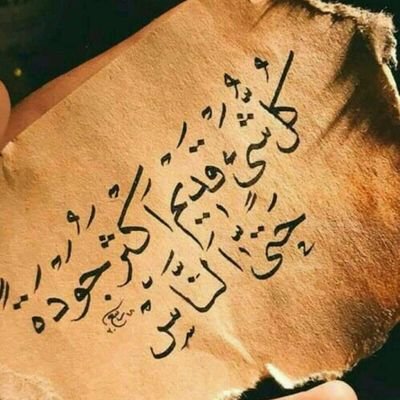 كُلُّ شَيْءٍ قَدِيم أَكْثَر جَوْدَة
حَتَّى النَّاسْ